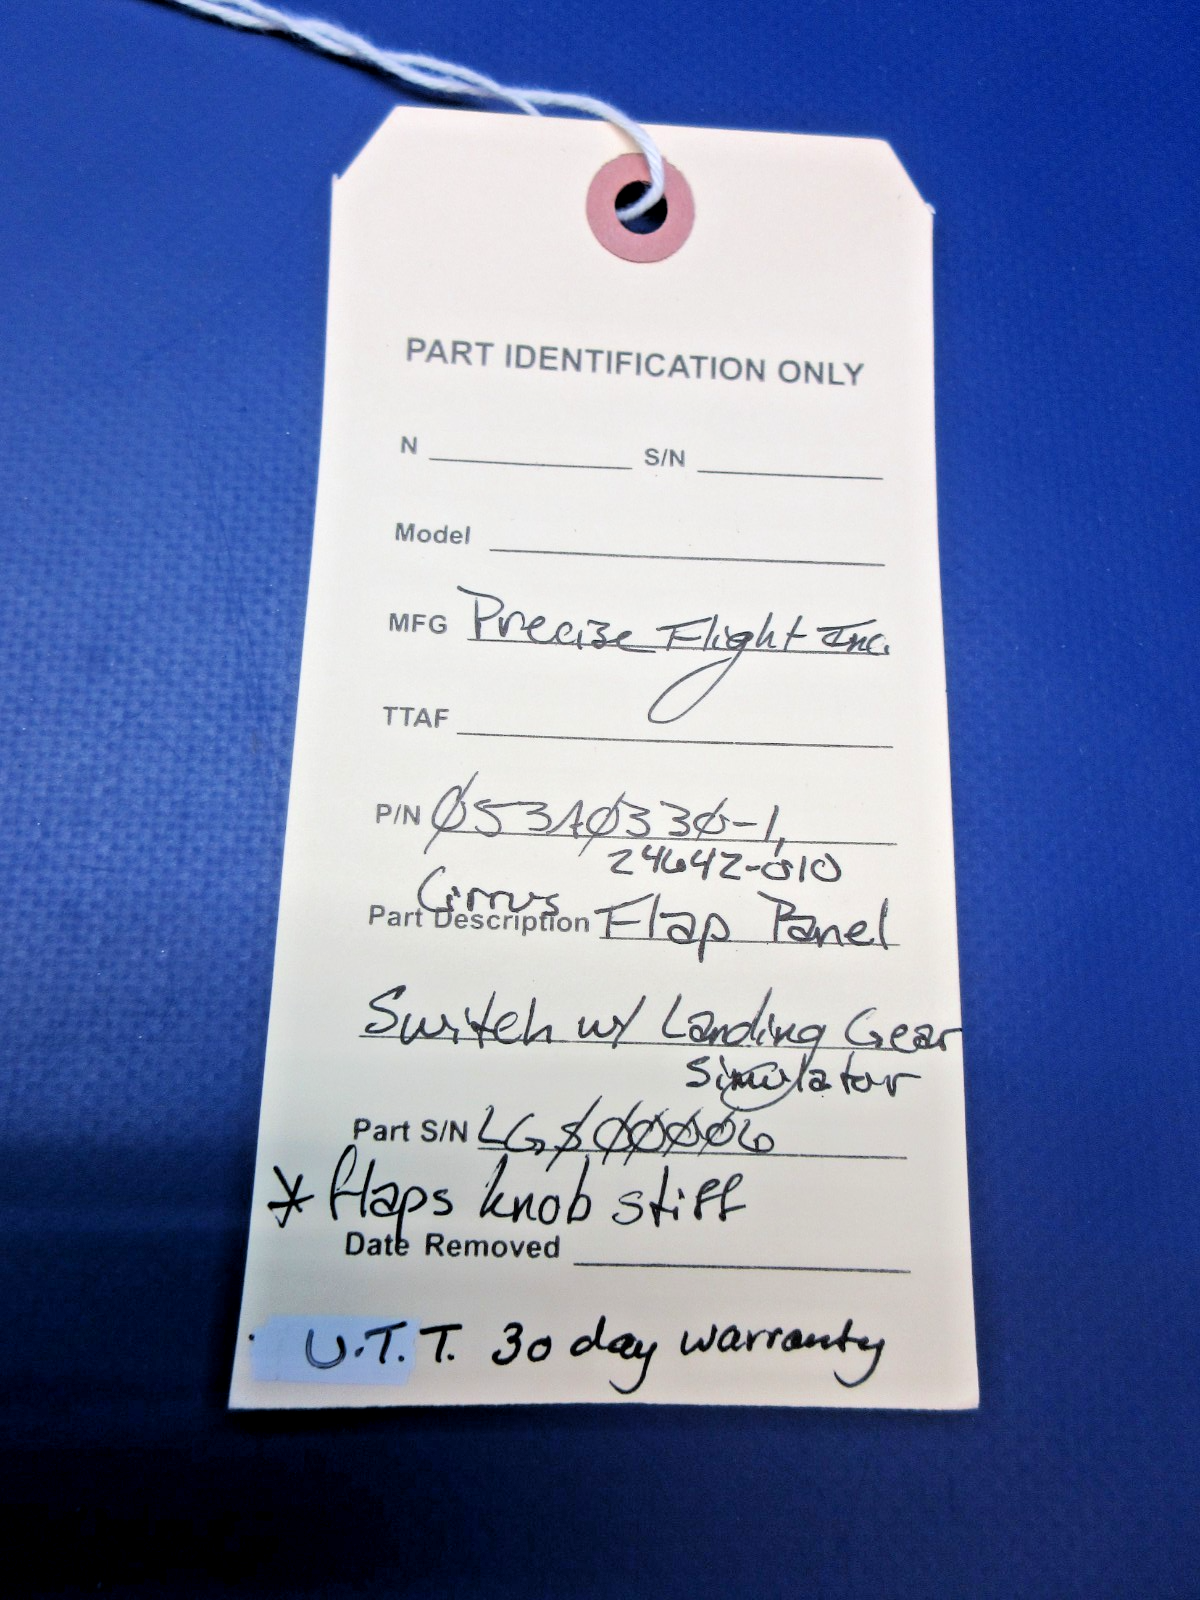 PART IDENTIFICATION ONLY
N S/N
Model
MFG Precise Flight Inc.
TTAF
P/N 053A0330-1,
24642-010
Cirrus
Part Description Flap Panel
Switch w/ Landing Gear
Simulator
Part S/N LGS00006
* flaps knob stiff
Date Removed
U.T.T. 30 day warranty